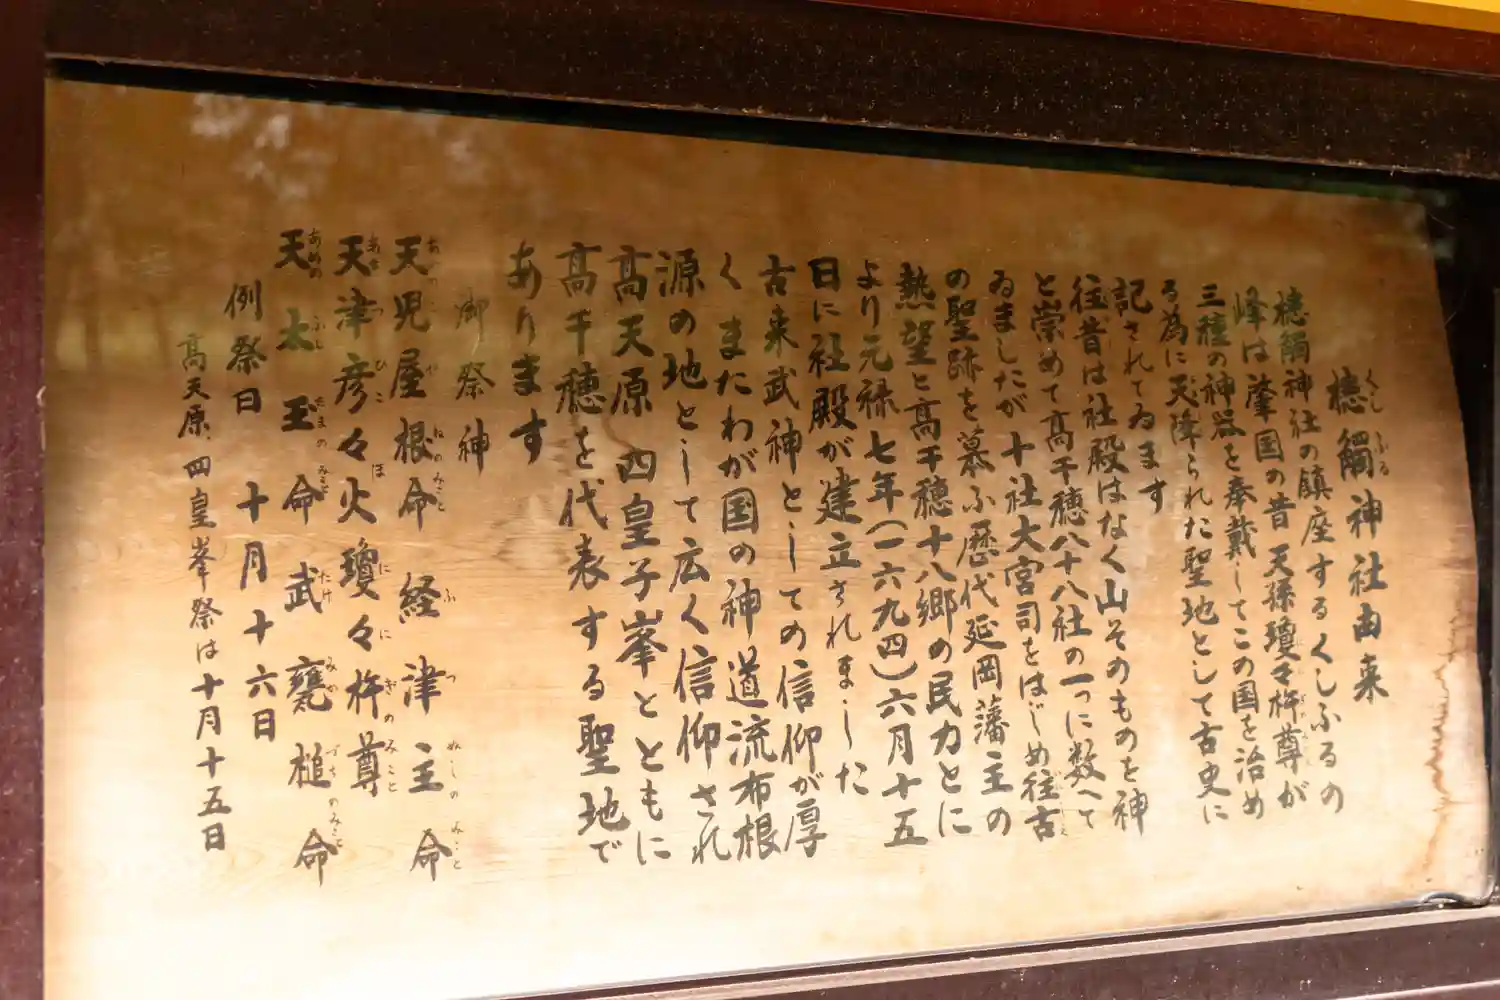 槵觸神社由来
槵觸神社の鎮座するくしふるの
峰は肇国の昔天孫瓊々杵尊が
三種の神器を奉戴してこの国を治め
る為に天降られた聖地として古史に
記されてゐます
往昔は社殿はなく山そのものを神
と崇めて高千穂八十八社の一つに数へて
ゐましたが十社大宮司をはじめ往古
の聖跡を慕ふ歴代延岡藩主の
熱望と高千穂十八郷の民力とに
より元禄七年(一六九四)六月十五
日に社殿が建立されました
古来武神としての信仰が厚
くまたわが国の神道流布根
源の地として広く信仰され
高天原 四皇子峯とともに
高千穂を代表する聖地で
あります
御祭神
天児屋根命 経津主命
天津彦々火瓊々杵尊
天太玉命 武甕槌命
例祭日 十月十六日
高天原、四皇峯祭は十月十五日